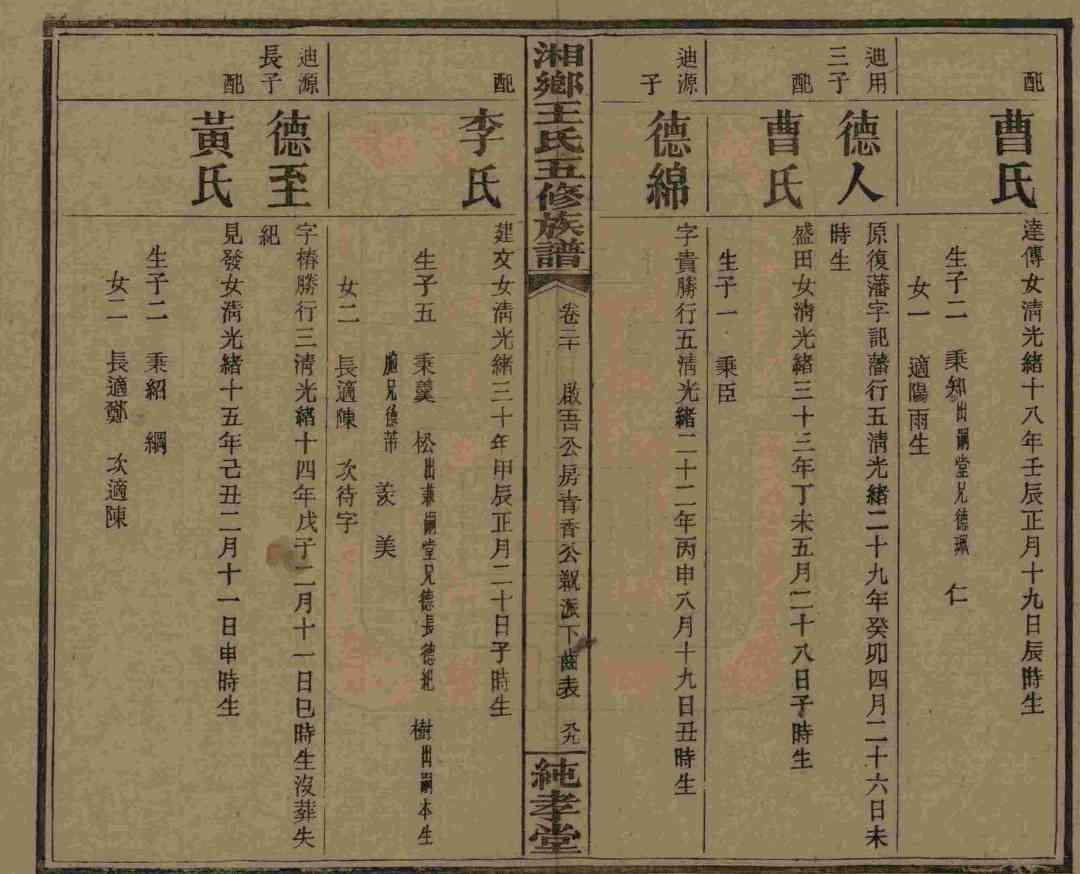 配
曹氏
達傳女淸光緒十八年壬辰正月十九日辰時生
生子二 秉知出嗣堂兄德珮 仁
女一 適陽雨生
迪用
三子
德人
原復藩字訒藩行五淸光緒二十九年癸卯四月二十六日未
時生
配
曹氏
盛田女淸光緒三十三年丁未五月二十八日子時生
生子一 秉臣
迪源
子
德綿
字貴勝行五淸光緒二十二年丙申八月十九日丑時生
湘鄉王氏五修族譜
卷三十 啟吾公房青香公親派下齒表 九
純孝堂
配
李氏
建文女淸光緒三十年甲辰正月二十日子時生
生子五 秉羮 松出兼嗣堂兄德長德紀 樹出嗣本生
胞兄德芾 羨 美
女二 長適陳 次待字
迪源
長子
德至
字椿勝行三淸光緒十四年戊子二月十一日巳時生沒葬失
紀
配
黃氏
見發女淸光緒十五年己丑二月十一日申時生
生子二 秉紹 綱
女二 長適鄭 次適陳